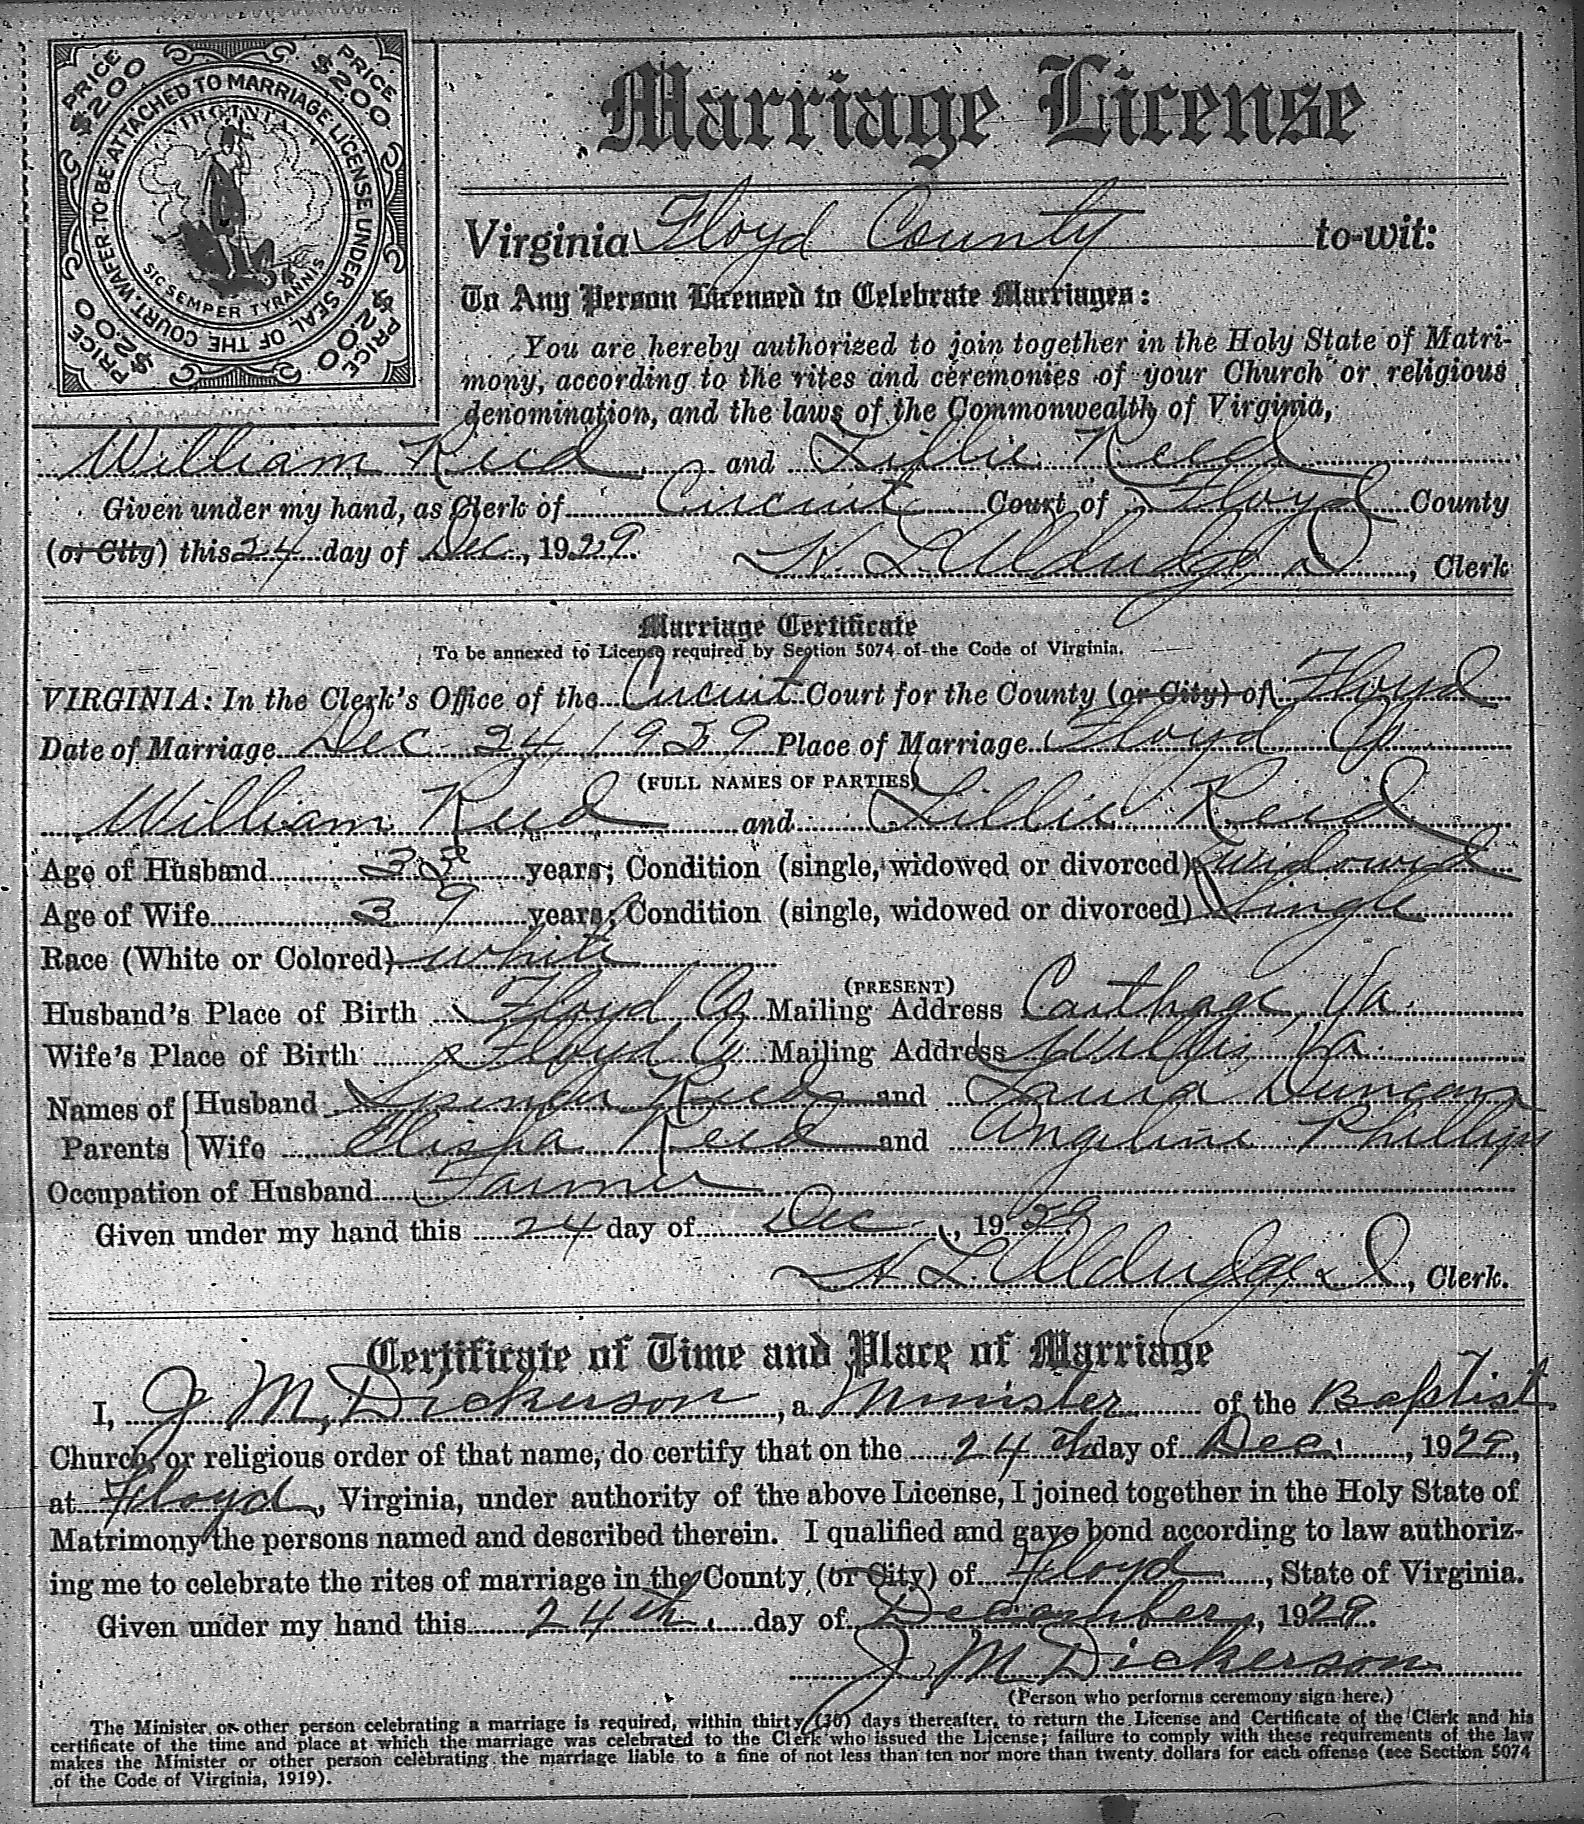 PRICE $2.00
PRICE $2.00
WAFER TO BE ATTACHED TO MARRIAGE LICENSE UNDER SEAL OF THE COURT.
VIRGINIA
SIC SEMPER TYRANNIS
PRICE $2.00
PRICE $2.00
Marriage License
Virginia Floyd County to-wit:
To Any Person Licensed to Celebrate Marriages:
You are hereby authorized to join together in the Holy State of Matri-
mony, according to the rites and ceremonies of your Church or religious
denomination, and the laws of the Commonwealth of Virginia,
William Reed and Lillie Reed
Given under my hand, as Clerk of Circuit Court of Floyd County
(or City) this 24 day of Dec, 1929. , Clerk
Marriage Certificate
To be annexed to License required by Section 5074 of the Code of Virginia.
VIRGINIA: In the Clerk's Office of the Circuit Court for the County (or City) of Floyd
Date of Marriage Dec 24 1929 Place of Marriage Floyd Co.
(FULL NAMES OF PARTIES)
William Reed and Lillie Reed
Age of Husband years; Condition (single, widowed or divorced) widowed
Age of Wife 39 years; Condition (single, widowed or divorced) Single
Race (White or Colored) white
(PRESENT)
Husband's Place of Birth Floyd Co Mailing Address Carthage, Va.
Wife's Place of Birth Floyd Co Mailing Address Willis Va
Names of Parents Husband Spencer Reed and Laura Duncan
Wife Elisha Reed and Angeline Phillips
Occupation of Husband Farmer
Given under my hand this 24 day of Dec, 1929
, Clerk.
Certificate of Time and Place of Marriage
I, J M Dickerson, a Minister of the Baptist
Church, or religious order of that name, do certify that on the 24th day of Dec., 1929,
at Floyd, Virginia, under authority of the above License, I joined together in the Holy State of
Matrimony the persons named and described therein. I qualified and gave bond according to law authoriz-
ing me to celebrate the rites of marriage in the County (or City) of Floyd, State of Virginia.
Given under my hand this 24th day of December, 1929.
J M Dickerson
(Person who performs ceremony sign here.)
The Minister or other person celebrating a marriage is required, within thirty (30) days thereafter, to return the License and Certificate of the Clerk and his
certificate of the time and place at which the marriage was celebrated to the Clerk who issued the License; failure to comply with these requirements of the law
makes the Minister or other person celebrating the marriage liable to a fine of not less than ten nor more than twenty dollars for each offense (see Section 5074
of the Code of Virginia, 1919).